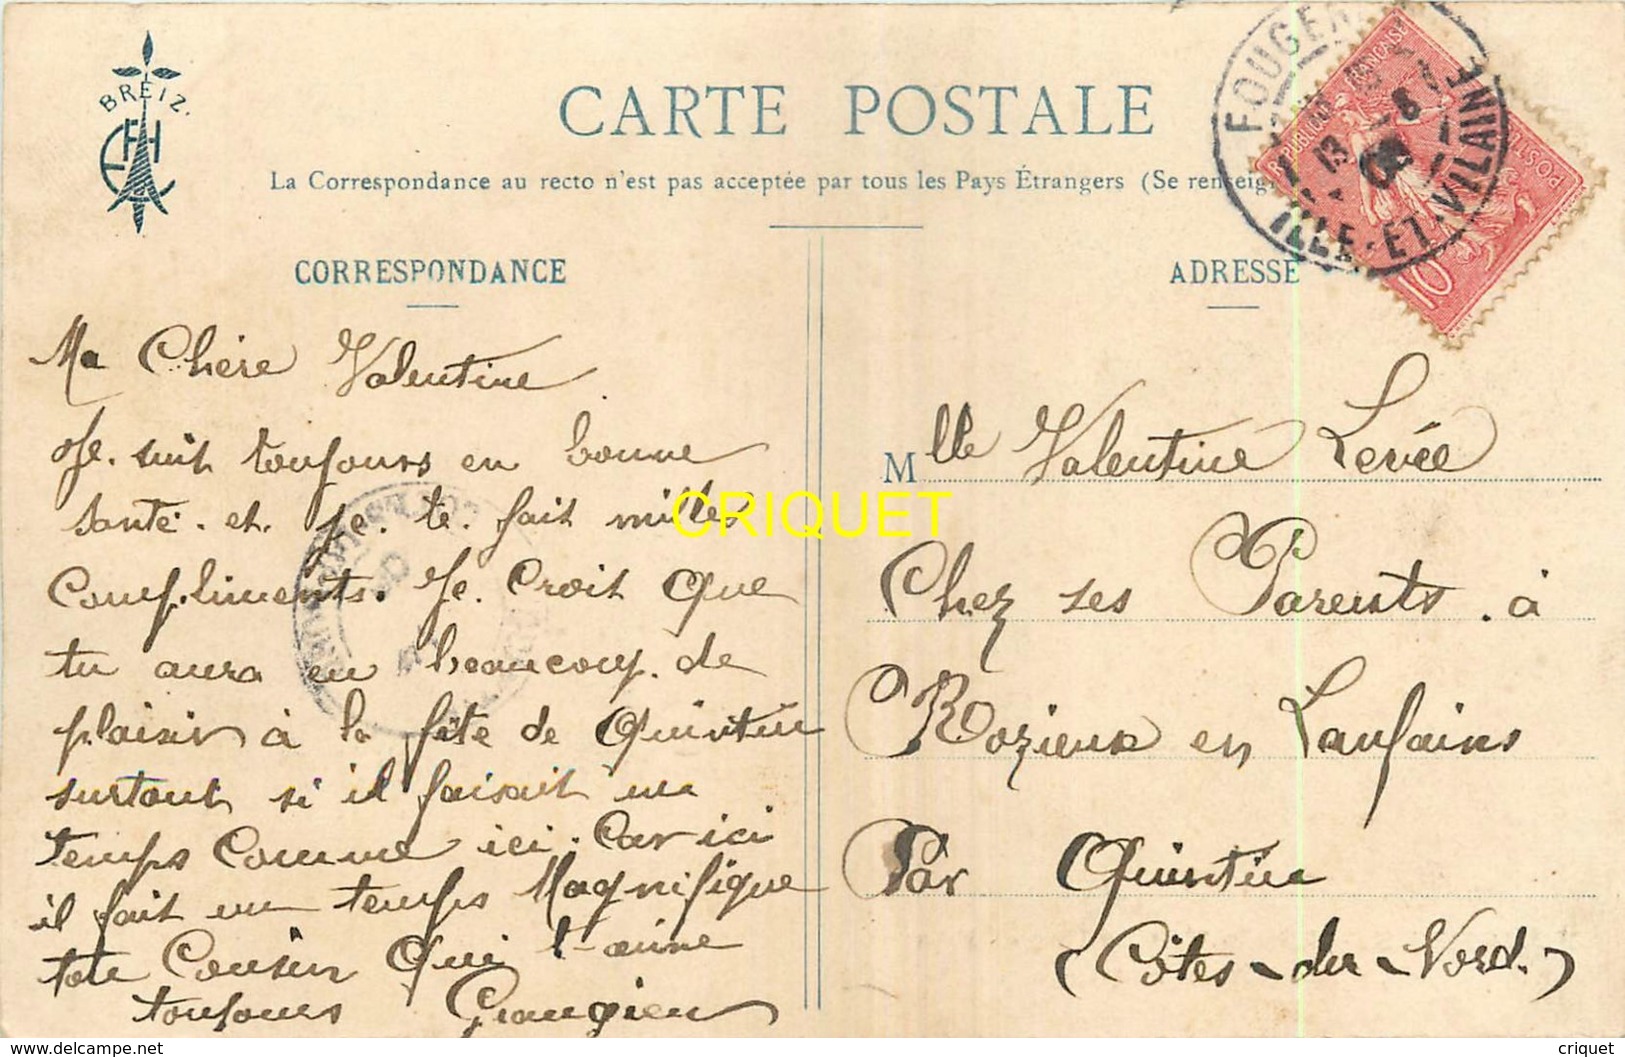 BREIZ.
EHC
CARTE POSTALE
La Correspondance au recto n'est pas acceptée par tous les Pays Étrangers (Se renseig
CORRESPONDANCE
Ma Chère Valentine
Je. suit toujours en bonne
santé. et. je. te. fait milles
compliments. Je. Croit Que
tu aura eu beaucoup. de
plaisir à la fête de Quintin
surtout si il faisait un
temps comme ici. Car ici
il fait un temps Magnifique
ton Cousin Qui t-aime
toujours
ADRESSE
Mlle Valentine Levée
Chez ses Parents. à
Rozieux en Lanfains
Par Quintin
(Côtes-du-Nord.)
FOUGER
ILLE-ET-VILAINE
13 -8
REPUBLIQUE FRANÇAISE
POSTES
10
CRIQUET
www.delcampe.net
criquet